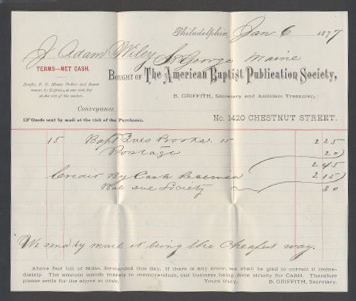 Philadelphia, Jan 6 1877
J. Adam Wiley St George Maine
TERMS—NET CASH.
BOUGHT OF The American Baptist Publication Society,
B. GRIFFITH, Secretary and Assistant Treasurer,
No. 1420 CHESTNUT STREET.
Conveyance,
Goods sent by mail at the risk of the Purchaser.
15 Books 15 2 25
Postage 20
2 45
Credit By Cash 2 15
Bal due Society 30
We send by mail it being the cheapest way.
Above find bill of Mdse. forwarded this day. If there is any error, we shall be glad to correct it immediately. The amount exceeds
Please settle for the
Yours truly, B. GRIFFITH, Secretary.